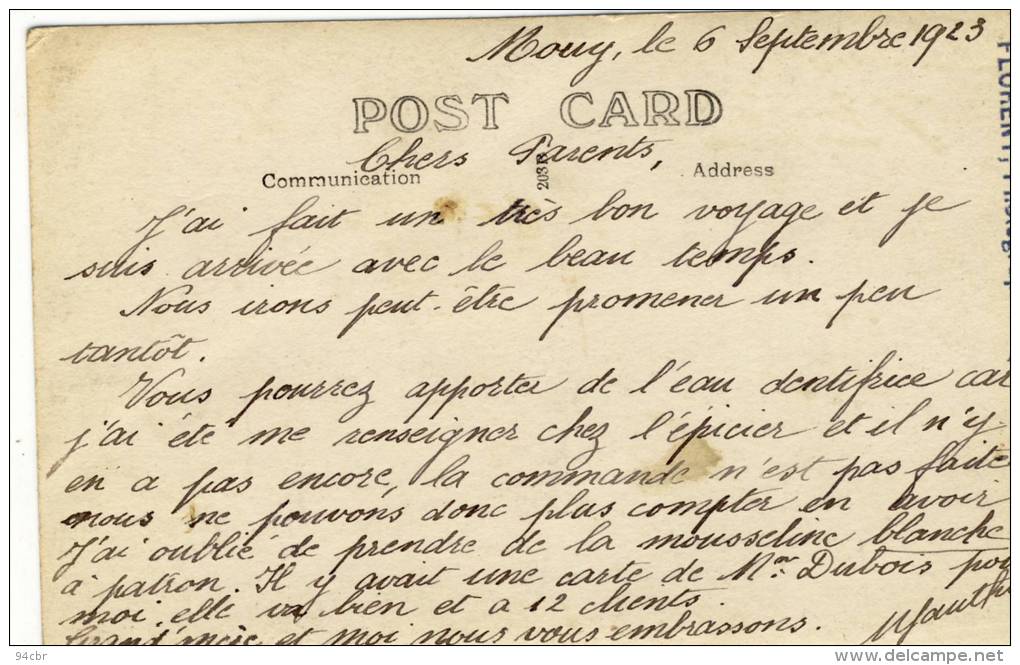 Mouy, le 6 Septembre 1923
POST CARD
Chers Parents,
Communication
203 B
Address
J'ai fait un très bon voyage et je
suis arrivée avec le beau temps.
Nous irons peut-être promener un peu
tantôt.
Vous pourrez apporter de l'eau dentifrice car
j'ai été me renseigner chez l'épicier et il n'y
en a pas encore, la commande n'est pas faite
nous ne pouvons donc plus compter en avoir
J'ai oublié de prendre de la mousseline blanche
à patron. Il y avait une carte de Mme Dubois pour
moi, elle va bien et a 12 clients.
Grand'mère et moi nous vous embrassons.
94cbr
delcampe.net